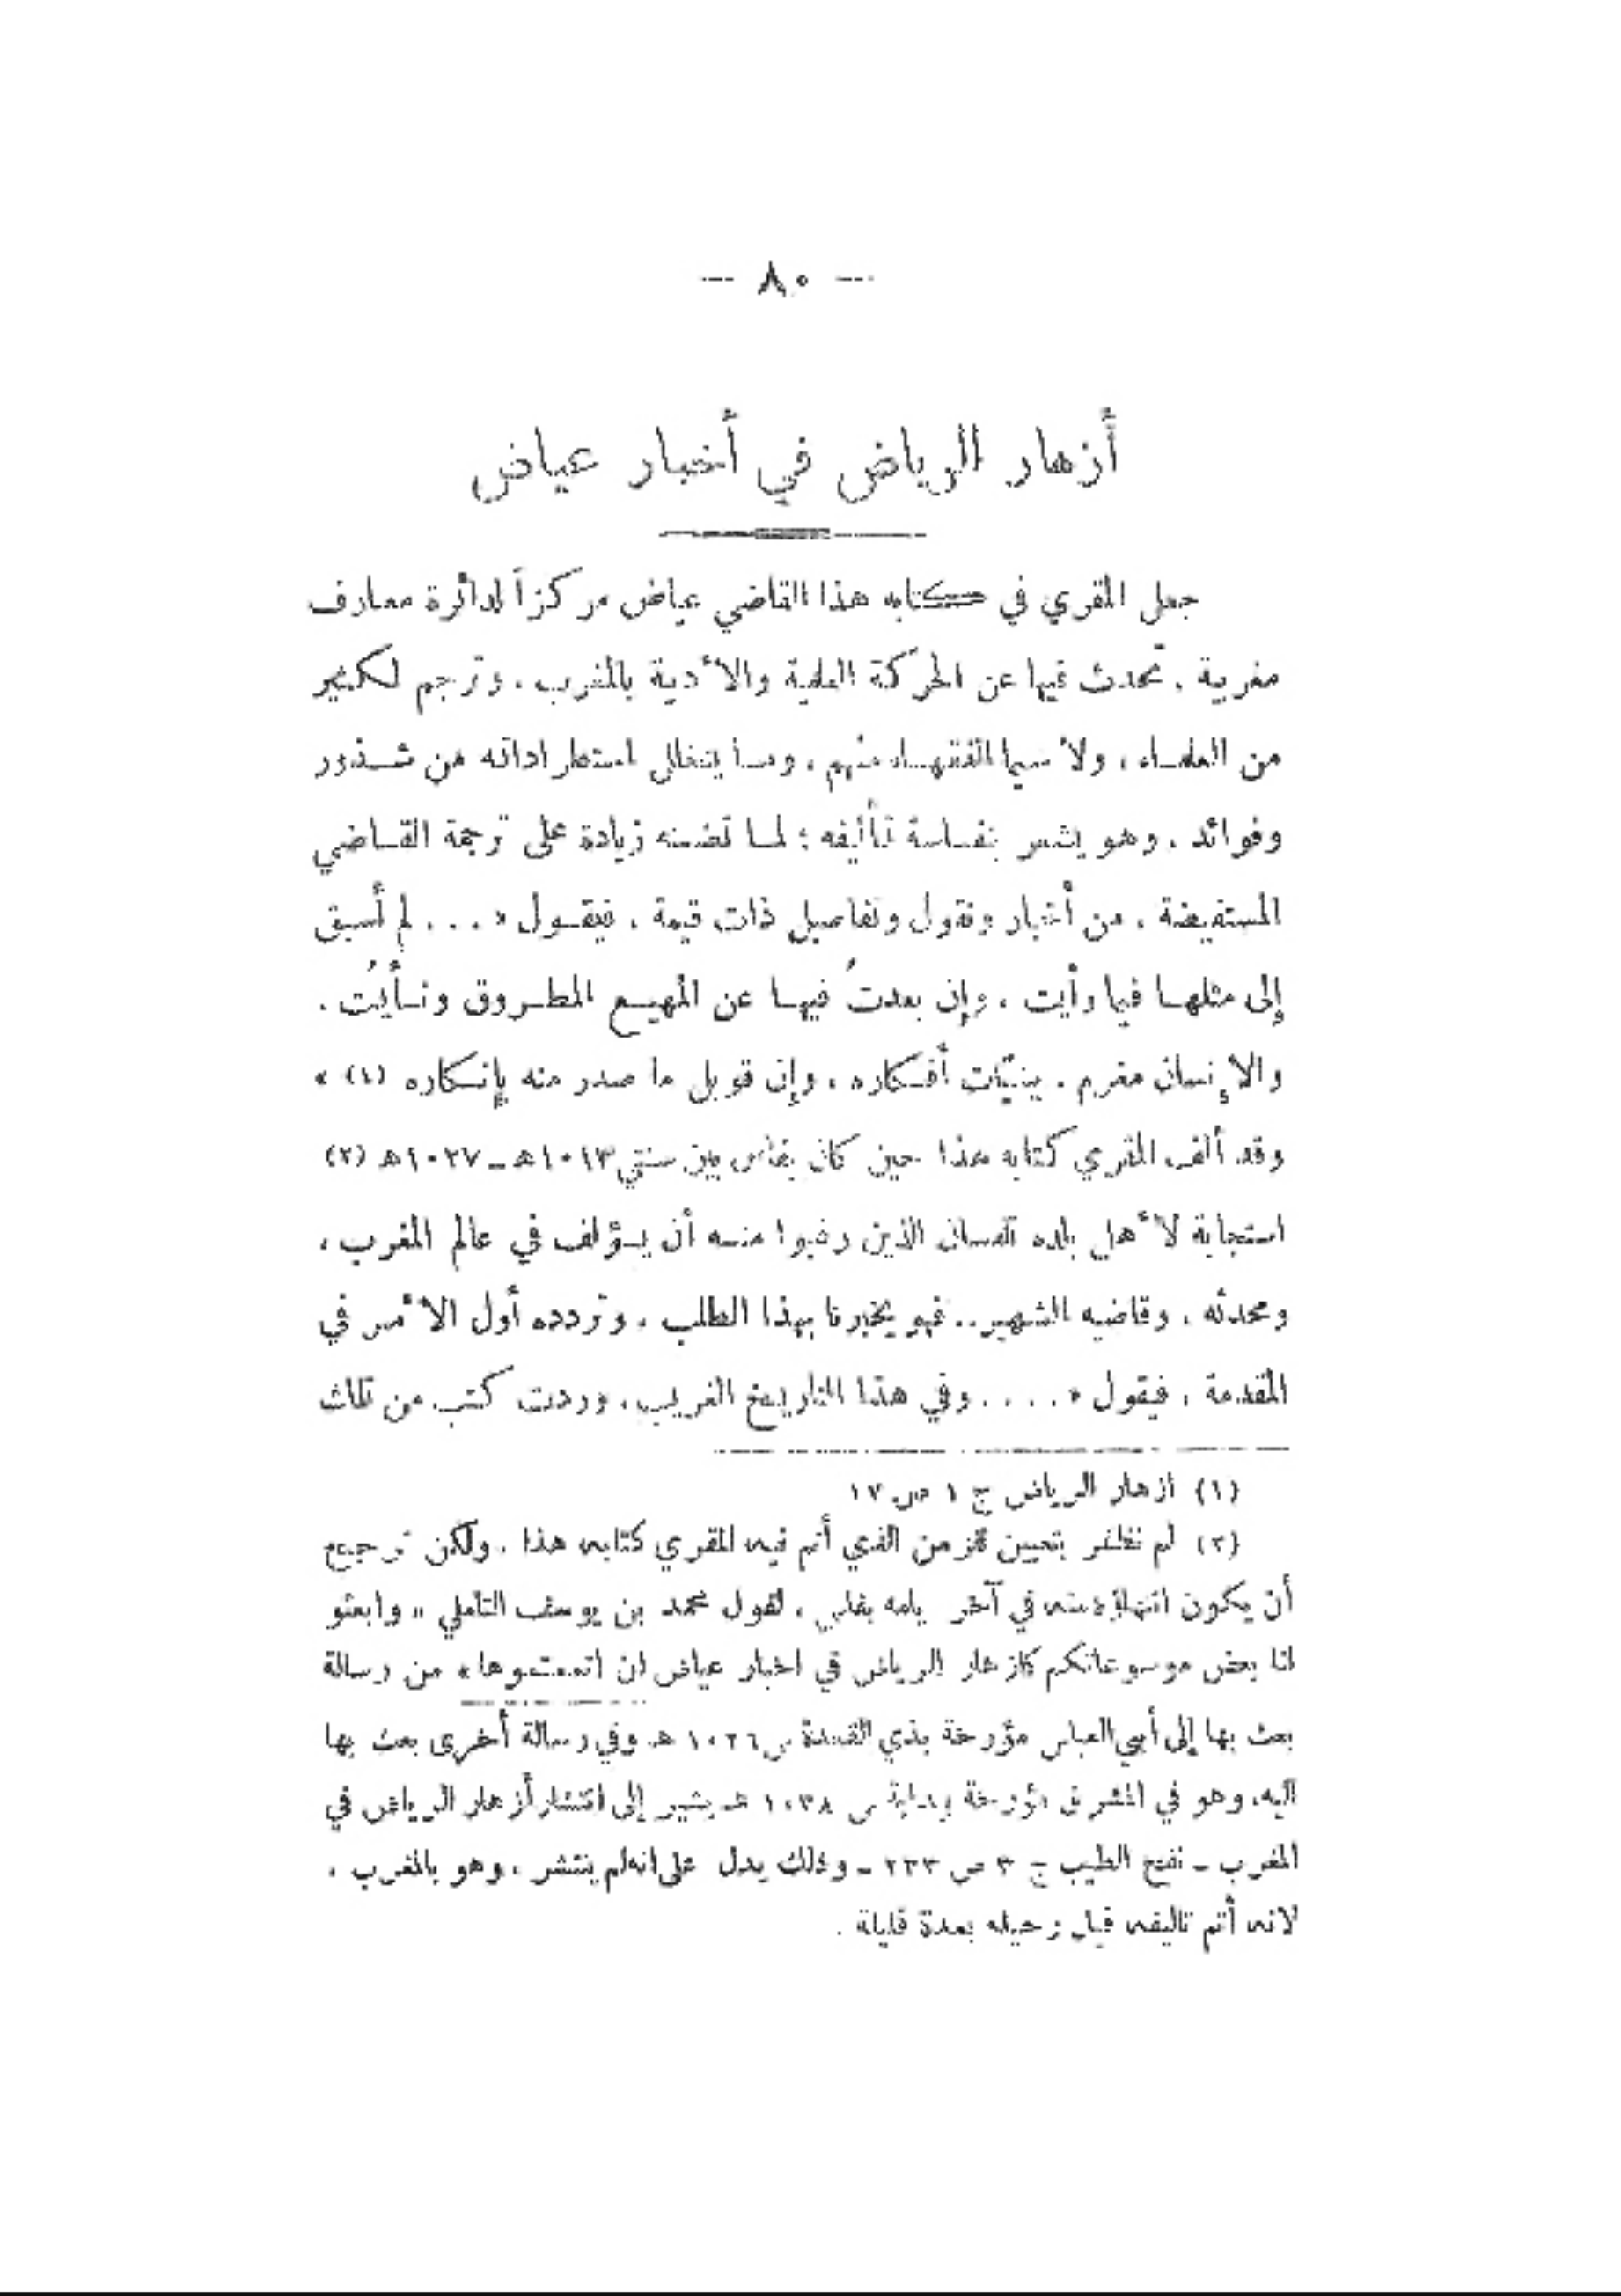 — ٨٠ —
أزهار الرياض في أخبار عياض
جعل المقري في كتابه هذا القاضي عياض مركزاً لدائرة معارف
مغربية ، تحدث فيها عن الحركة العلمية والأدبية بالمغرب ، وترجم لكثير
من العلماء ، ولا سيما الفقهاء منهم ، وما يتخلل استطراداته من شذور
وفوائد . وهو يشعر بنفاسة تأليفه ؛ لما تضمنه زيادة على ترجمة القاضي
المستفيضة ، من أخبار ونقول وتفاصيل ذات قيمة ، فيقول « . . . لم أسبق
إلى مثلها فيما رأيت ، وإن بعدتُ فيها عن المهيع المطروق ونأيتُ .
والإنسان مغرم . ببنيّات أفكاره ، وإن قوبل ما صدر منه بإنكاره (١) »
وقد ألف المقري كتابه هذا حين كان بفاس بين سنتي ١٠١٣هـ - ١٠٢٧هـ (٢)
استجابة لأهل بلده تلمسان الذين رغبوا منه أن يؤلف في عالم المغرب ،
ومحدثه ، وقاضيه الشهير .. فهو يخبرنا بهذا الطلب ، وتردده أول الأمر في
المقدمة ، فيقول « . . . . وفي هذا التاريخ الغريب ، وردت كتب من تلك
(١) أزهار الرياض ج ١ ص ١٧
(٢) لم نظفر بتعيين الزمن الذي أتم فيه المقري كتابه هذا . ولكن ترجيح
أن يكون انتهاؤه منه في آخر أيامه بفاس ، لقول محمد بن يوسف التاملي « وابعثو
لنا بعض موسوعاتكم كازهار الرياض في اخبار عياض ان اتممتموها » من رسالة
بعث بها إلى أبي العباس مؤرخة بذي القعدة س ١٠٢٦ هـ وفي رسالة أخرى بعث بها
اليه، وهو في المشرق مؤرخة ببداية س ١٠٣٨ هـ يشير إلى انتشار أزهار الرياض في
المغرب - نفح الطيب ج ٣ ص ٢٣٣ - وذلك يدل على انه لم ينتشر ، وهو بالمغرب ،
لانه أتم تاليفه قبل رحيله بمدة قليلة .